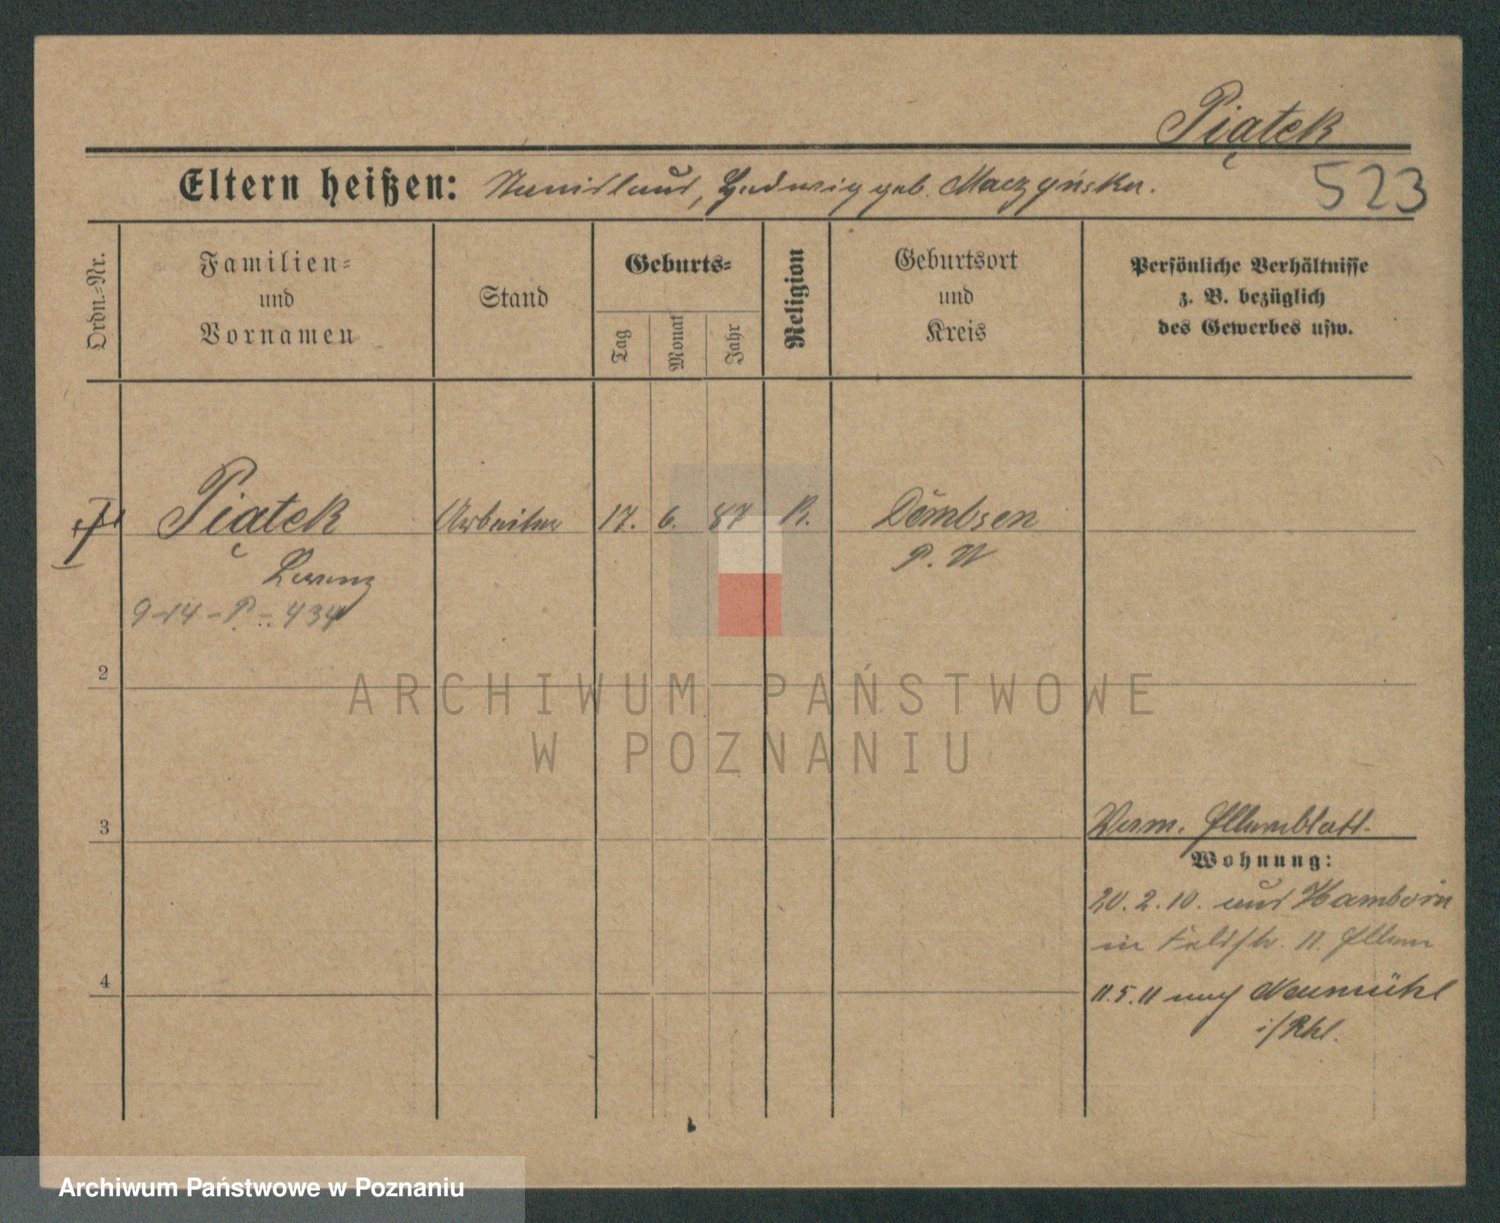 Piątek
Eltern heißen: Stanislaus, Hedwig geb. Maczyńska.
523
Ordn.-Nr.
Familien-
und
Vornamen
Stand
Geburts-
Tag
Monat
Jahr
Religion
Geburtsort
und
Kreis
Persönliche Verhältnisse
z. B. bezüglich
des Gewerbes usw.
Piątek Arbeiter 17. 6. 87 R. Dembsen
Lorenz P. W
9-14-P-434
2
ARCHIWUM PAŃSTWOWE
W POZNANIU
3
Verm. Elternblatt.
Wohnung:
20.2.10. aus Hamborn
in Feldstr. 11. Eltern
4
11.5.11 nach Neumühl
i/Rhl.
Archiwum Państwowe w Poznaniu